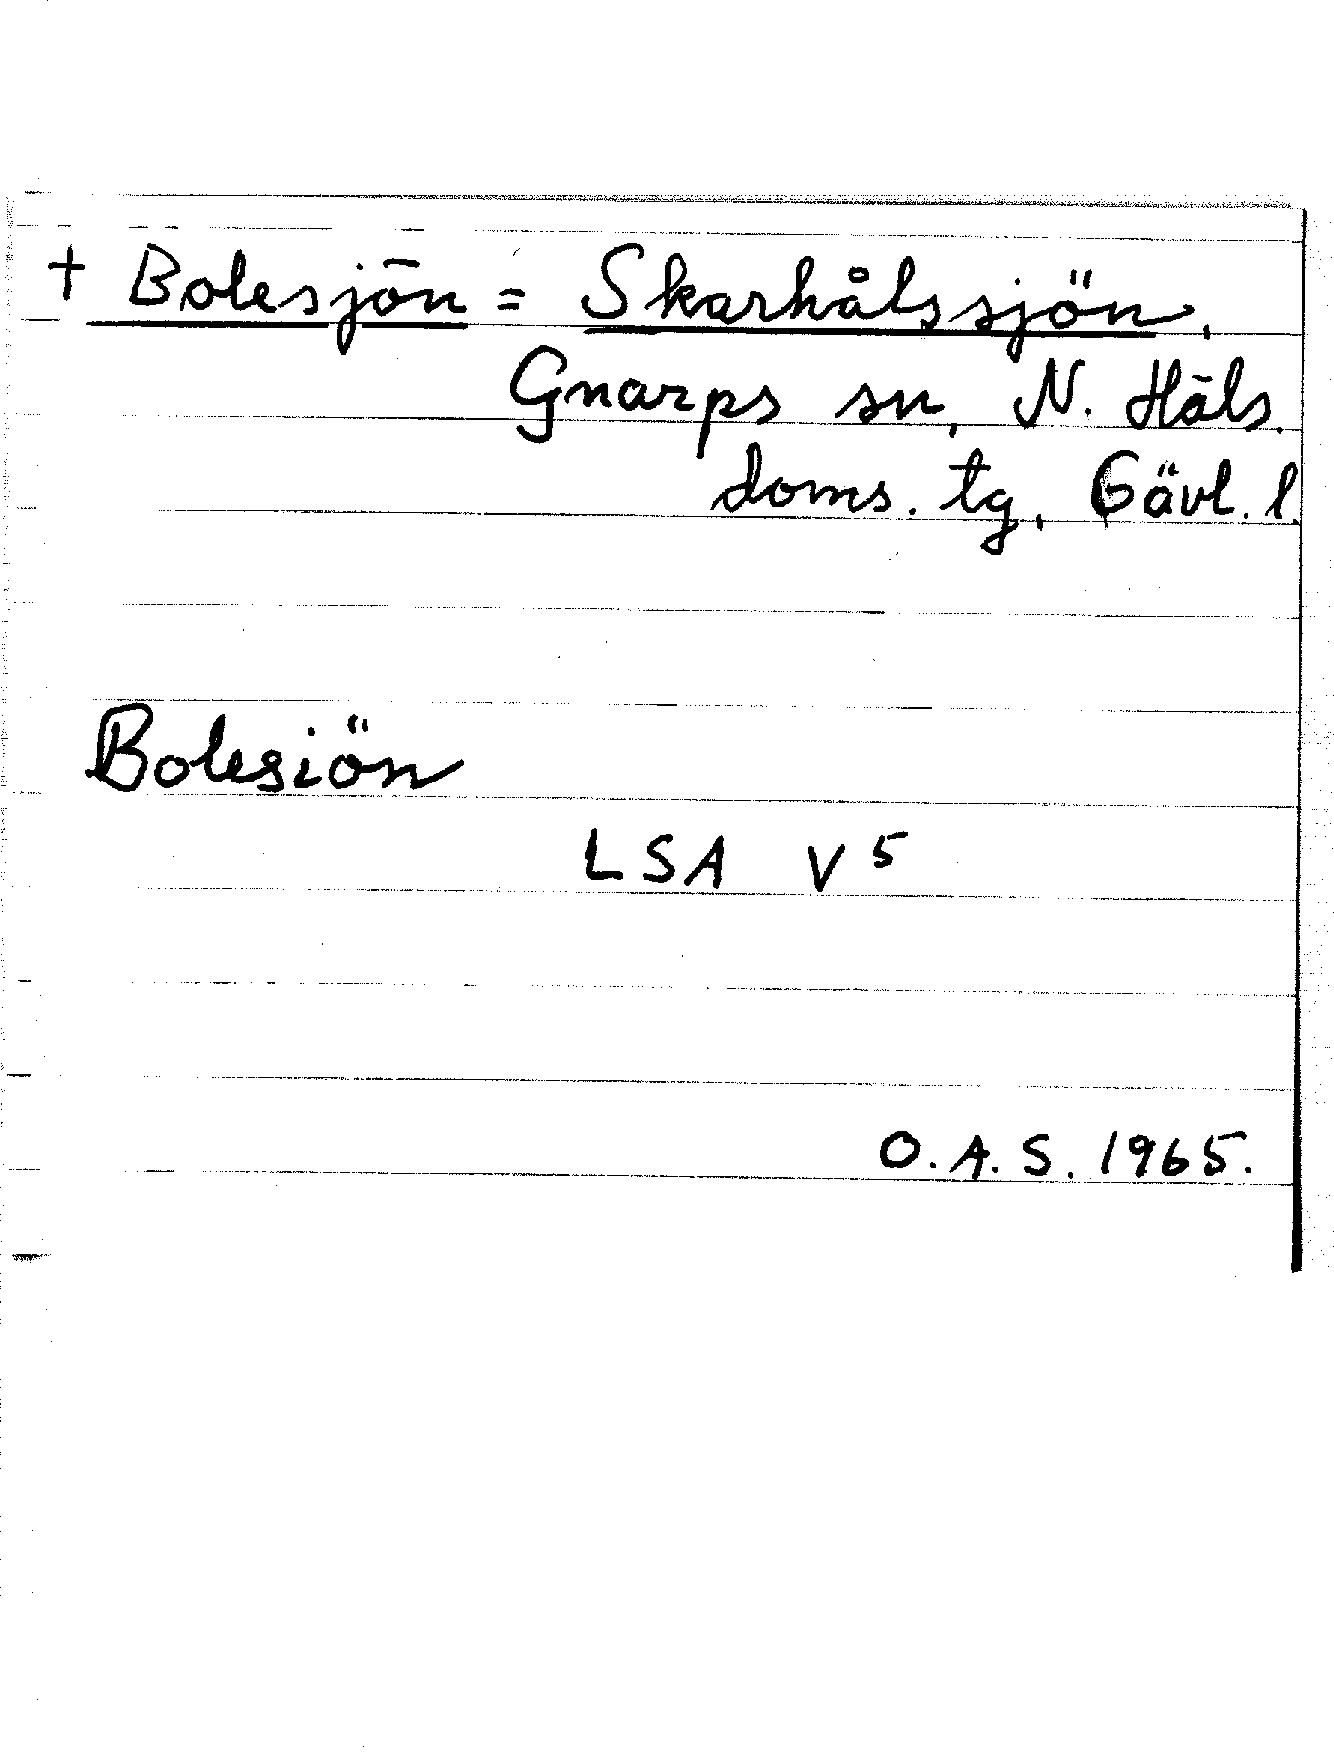 + Bolesjön = Skarhålssjön,
Gnarps sn, N. Häls.
doms. tg, Gävl. l.
Bolesiön
LSA V 5
O.A.S. 1965.